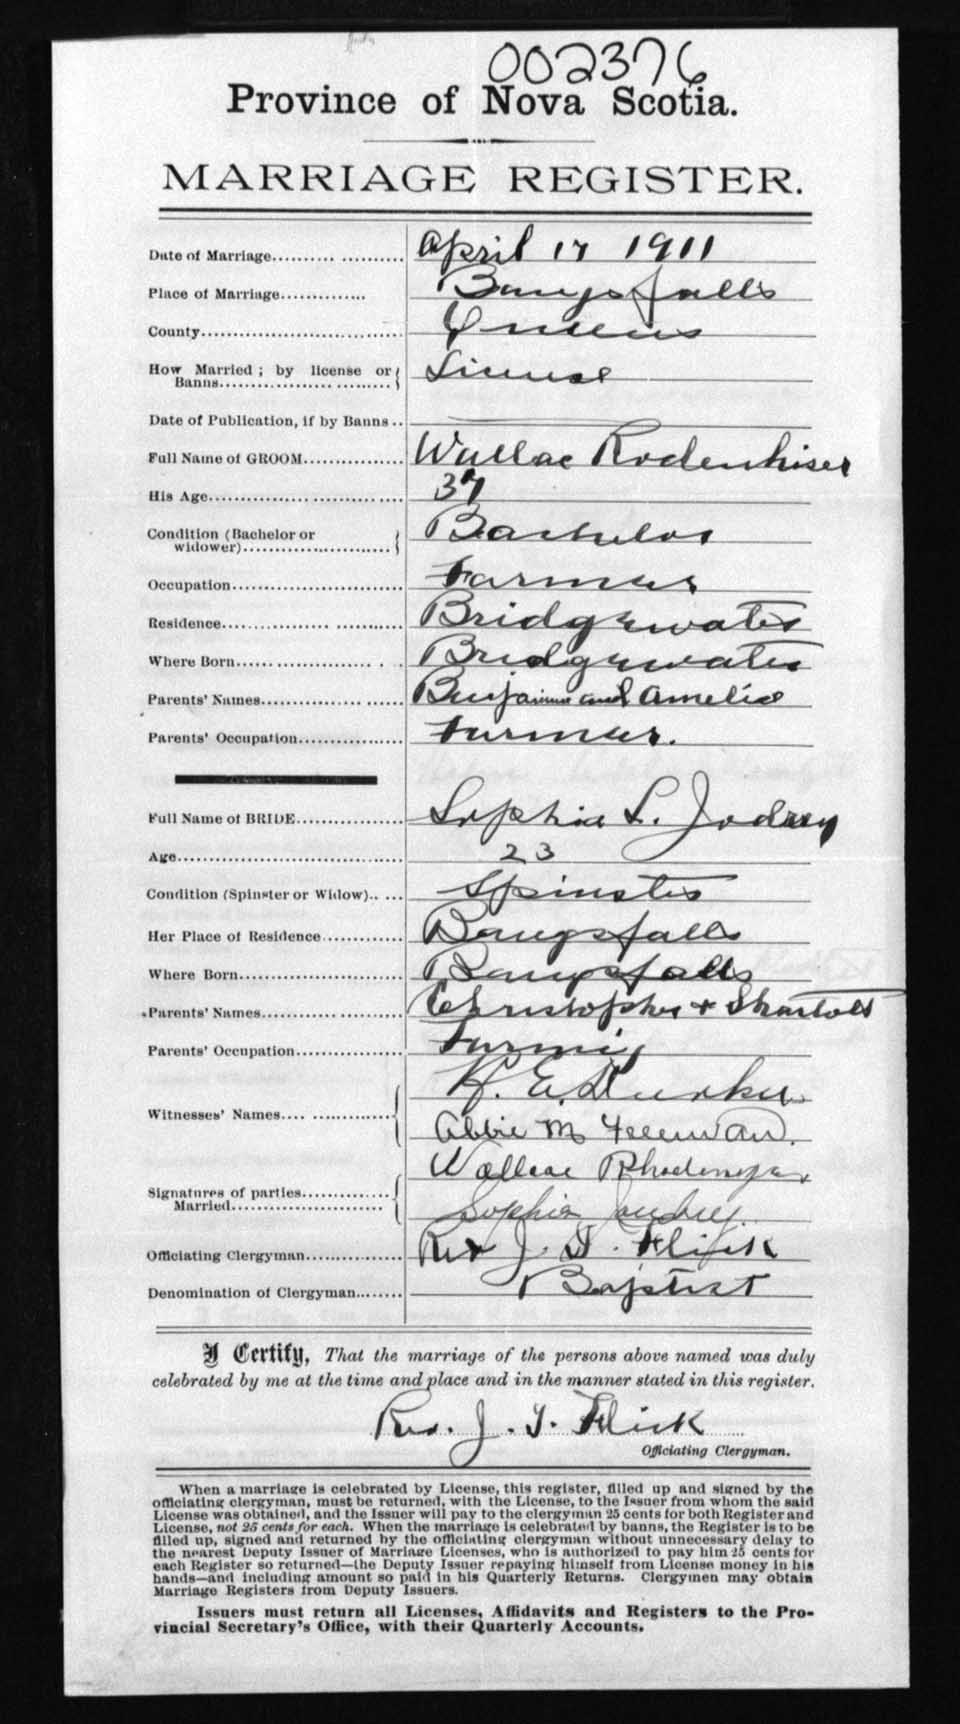 002376
Province of Nova Scotia.
MARRIAGE REGISTER.
Date of Marriage.......... April 17 1911
Place of Marriage............. Bangsfalls
County............................ Queens
How Married ; by license or Banns.................... License
Date of Publication, if by Banns..
Full Name of GROOM............... Wallace Rodenhiser
His Age............................ 37
Condition (Bachelor or widower)...................... Bachelor
Occupation......................... Farmer
Residence.......................... Bridgewater
Where Born...................... Bridgewater
Parents' Names..................... Benjamin and Amelia
Parents' Occupation................ Farmer.
Full Name of BRIDE................ Sophia L. Jodrey
Age................................ 23
Condition (Spinster or Widow)..... Spinster
Her Place of Residence............ Bangsfalls
Where Born......................... Bangsfalls
Parents' Names..................... Christopher +
Parents' Occupation................ Farming
Witnesses' Names................... H. E.
Abbie M Freeman.
Signatures of parties Married........................ Wallace
Sophia
Officiating Clergyman............... Rev J. Flick
Denomination of Clergyman........ Baptist
I Certify, That the marriage of the persons above named was duly
celebrated by me at the time and place and in the manner stated in this register.
Rev. J. Flick
Officiating Clergyman.
When a marriage is celebrated by License, this register, filled up and signed by the
officiating clergyman, must be returned, with the License, to the Issuer from whom the said
License was obtained, and the Issuer will pay to the clergyman 25 cents for both Register and
License, not 25 cents for each. When the marriage is celebrated by banns, the Register is to be
filled up, signed and returned by the officiating clergyman without unnecessary delay to
the nearest Deputy Issuer of Marriage Licenses, who is authorized to pay him 25 cents for
each Register so returned—the Deputy Issuer repaying himself from License money in his
hands—and including amount so paid in his Quarterly Returns. Clergymen may obtain
Marriage Registers from Deputy Issuers.
Issuers must return all Licenses, Affidavits and Registers to the Pro-
vincial Secretary's Office, with their Quarterly Accounts.